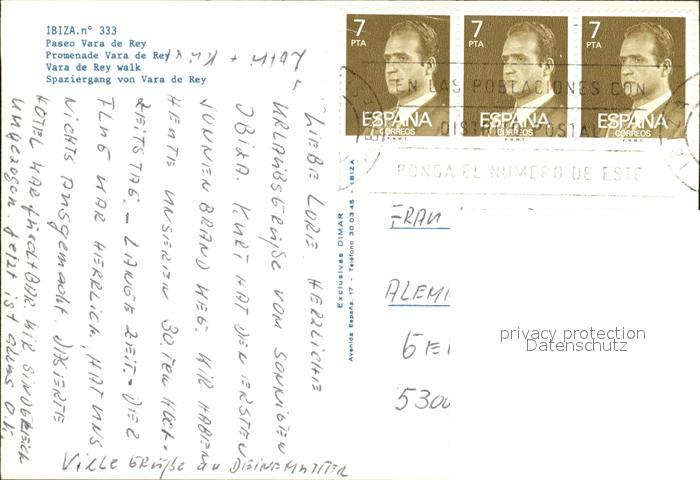 IBIZA.nº 333
Paseo Vara de Rey
Promenade Vara de Rey
Vara de Rey walk
Spaziergang von Vara de Rey
7
PTA
ESPAÑA
CORREOS
F.N.M.T.
7
PTA
ESPAÑA
CORREOS
F.N.M.T.
7
PTA
ESPAÑA
CORREOS
F.N.M.T.
EN LAS POBLACIONES CON
DISTRITO POSTAL
PONGA EL NUMERO DE ESTE
Exclusivas DIMAR
Avenida España, 17 - Teléfono 30 03 45 - IBIZA
LIEBE LORE. HERZLICHE
URLAUBSGRÜßE VOM SONNIGEN
IBIZA. KURT HAT DEN ERSTEN
SONNENBRAND WEG. WIR HABEN
HEUTE UNSEREN 30TEN HOCH-
ZEITSTAG. - LANGE ZEIT. - DER
FLUG WAR HERRLICH, HAT UNS
NICHTS AUSGEMACHT. DAS ERSTE
HOTEL WAR FURCHTBAR. WIR SIND GLEICH
umgezogen. Jetzt ist alles O.K.
Viele GRÜßE an DEINE MUTTER
+
FRAU
ALEM
5300
privacy protection
Datenschutz